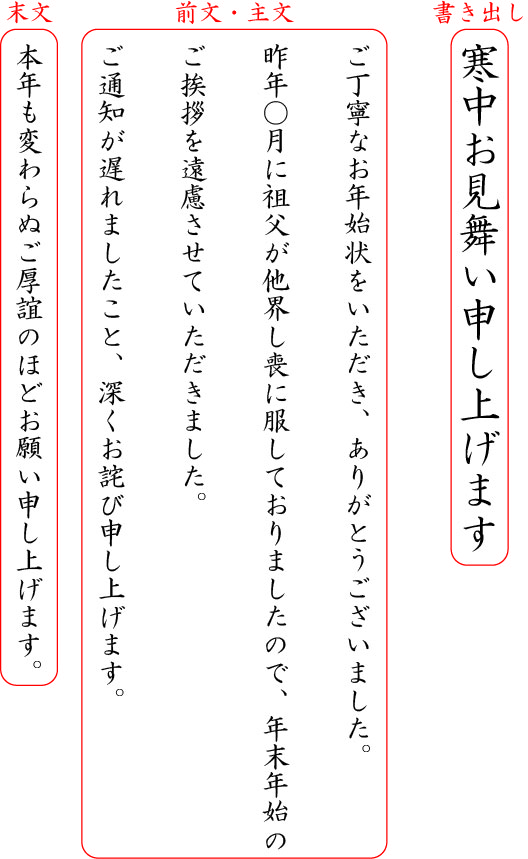 書き出し
寒中お見舞い申し上げます
前文・主文
ご丁寧なお年始状をいただき、ありがとうございました。
昨年〇月に祖父が他界し喪に服しておりましたので、年末年始の
ご挨拶を遠慮させていただきました。
ご通知が遅れましたこと、深くお詫び申し上げます。
末文
本年も変わらぬご厚誼のほどお願い申し上げます。